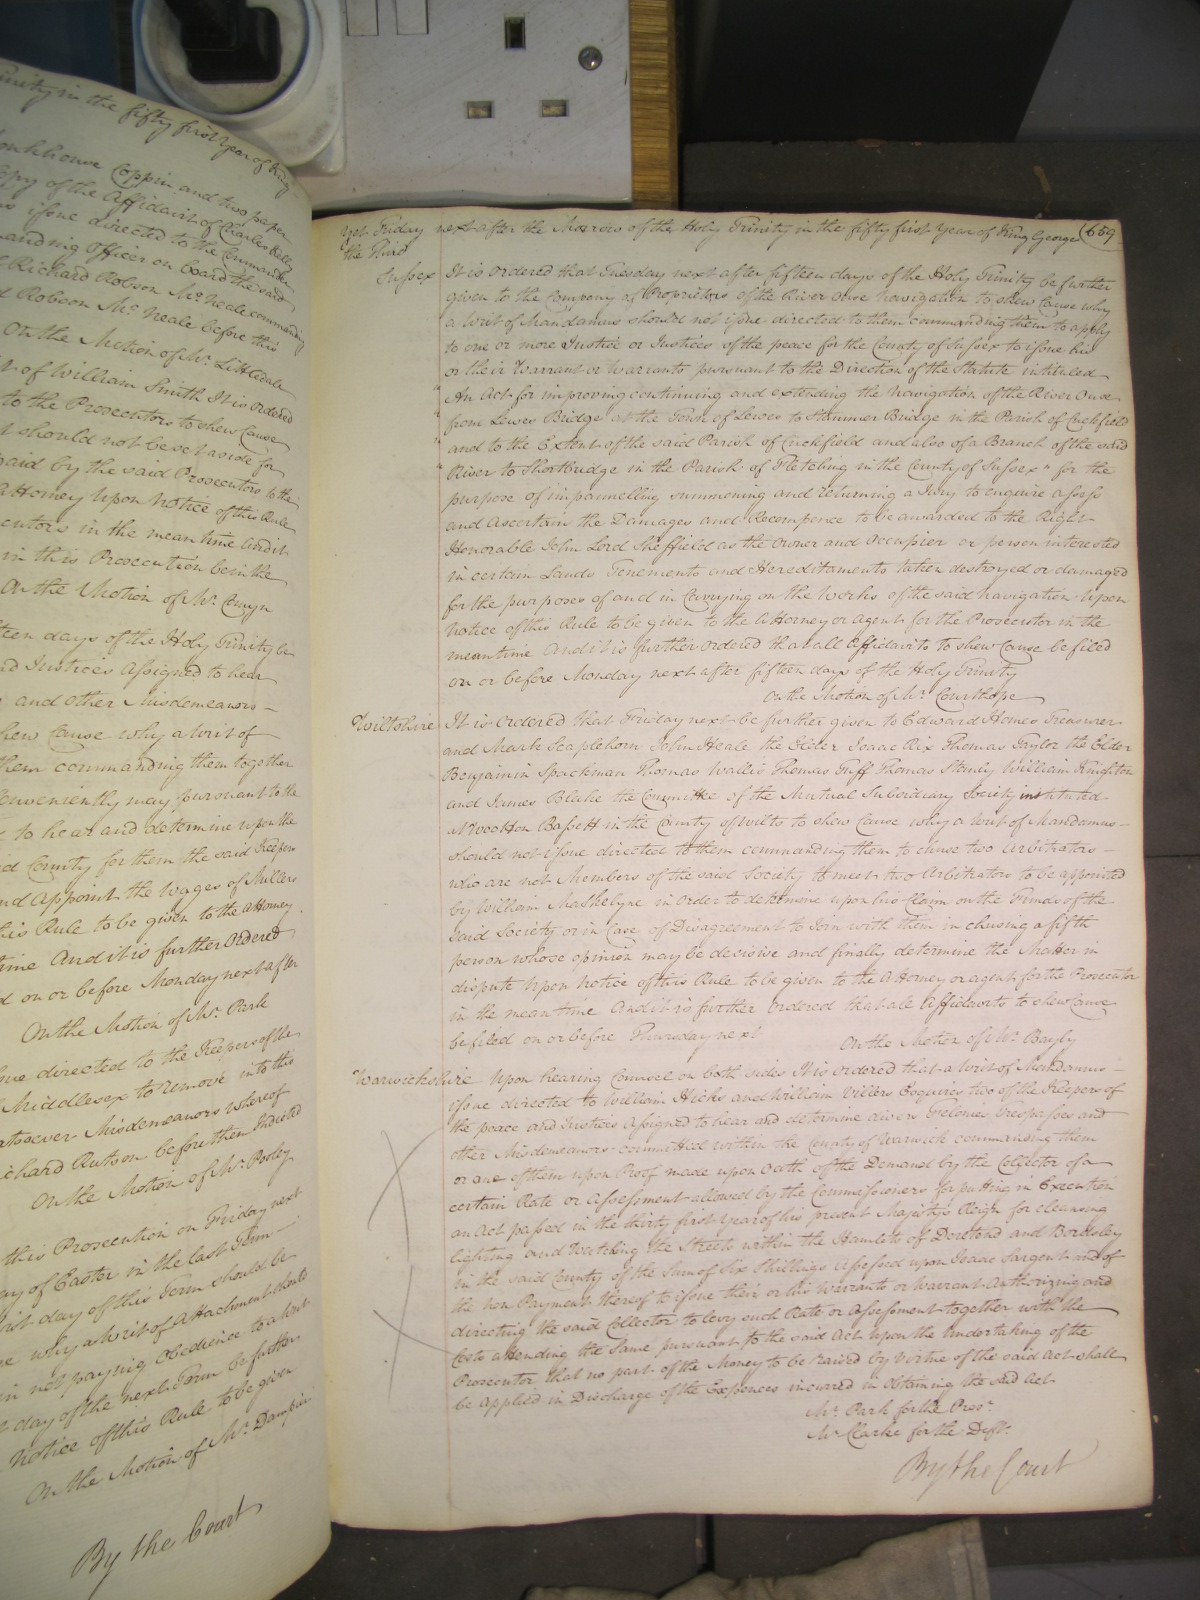 Trinity in the fifty first Year of King
Coppin and two paper
Copy of the Affidavit of Charles Kelly
issue directed to the Commander
Commanding Officer on board the said
Richard Robson McNeale commanding
Robson McNeale before this
On the Motion of Mr. Littledale
of William Smith It is ordered
to the Prosecutors to shew Cause
should not be set aside for
paid by the said Prosecutors to the
Attorney Upon Notice of this Rule
Prosecutors in the mean time And it
in this Prosecution be in the
On the Motion of Mr. Comyn
fifteen days of the Holy Trinity be
and Justices Assigned to hear
and other Misdemeanors
shew Cause why a Writ of
them commanding them together
Conveniently may pursuant to the
to hear and determine upon the
said County for them the said Keepers
and Appoint the Wages of Millers
this Rule to be given to the Attorney
time And it is further Ordered
on or before Monday next after
On the Motion of Mr. Park
issue directed to the Keepers of the
Middlesex to remove into this
whatsoever Misdemeanors whereof
Richard Rutson before them Indicted
On the Motion of Mr. Pooley
this Prosecution on Friday next
day of Easter in the last Term
first day of this Term should be
why a Writ of Attachment should
in not paying Obedience to a Writ
day of the next Term be further
Notice of this Rule to be given
On the Motion of Mr. Dampier
By the Court
Yet Friday next after the Morrow of the Holy Trinity in the fifty first Year of King George 659
the Third
Sussex It is Ordered that Tuesday next after fifteen days of the Holy Trinity be further
given to the Company of Proprietors of the River Ouse Navigation to shew Cause why
a Writ of Mandamus should not issue directed to them commanding them to apply
to one or more Justice or Justices of the peace for the County of Sussex to issue his
or their Warrant or Warrants pursuant to the Direction of the Statute intituled
" An Act for improving continuing and extending the Navigation of the River Ouse
" from Lewes Bridge at the Town of Lewes to Hammer Bridge in the Parish of Cuckfield
" and to the Extent of the said Parish of Cuckfield and also of a Branch of the said
" River to Shortbridge in the Parish of Fletching in the County of Sussex " for the
purpose of impannelling summoning and returning a Jury to enquire assess
and Ascertain the Damages and Recompence to be awarded to the Right
Honorable John Lord Sheffield as the Owner and Occupier or person interested
in certain Lands Tenements and Hereditaments taken destroyed or damaged
for the purposes of and in Carrying on the Works of the said Navigation Upon
Notice of this Rule to be given to the Attorney or Agent for the Prosecutor in the
mean time And it is further Ordered that all Affidavits to shew Cause be filed
on or before Monday next after fifteen days of the Holy Trinity
On the Motion of Mr. Courthope
Wiltshire It is Ordered that Friday next be further given to Edward Homes Treasurer
and Mark Staplehorn John Heale the Elder Isaac Rix Thomas Taylor the Elder
Benjamin Spackman Thomas Wallis Thomas Tuff Thomas Stanly William Knighton
and James Blake the Committee of the Mutual Subsidiary Society instituted
at Wootton Bassett in the County of Wilts to shew Cause why a Writ of Mandamus
should not issue directed to them commanding them to chuse two Arbitrators
who are not Members of the said Society to meet two Arbitrators to be appointed
by William Maskelyne in Order to determine upon his Claim on the Funds of the
said Society or in Case of Disagreement to Join with them in chusing a fifth
person whose opinion may be decisive and finally determine the Matter in
dispute Upon Notice of this Rule to be given to the Attorney or agent for the Prosecutor
in the mean time And it is further Ordered that all Affidavits to shew Cause
be filed on or before Thursday next
On the Motion of Mr. Bayly
Warwickshire Upon hearing Counsel on both sides It is Ordered that a Writ of Mandamus
issue directed to William Hicks and William Villers Esquires two of the Keepers of
the peace and Justices Assigned to hear and determine divers Felonies Trespasses and
other Misdemeanors committed within the County of Warwick commanding them
or one of them upon Proof made upon Oath of the Demand by the Collector of a
certain Rate or Assessment allowed by the Commissioners for putting in Execution
an Act passed in the thirty first Year of his present Majesty's Reign for cleansing
lighting and Watching the Streets within the Hamlets of Deretend and Bordesley
in the said County of the Sum of Six Shillings Assessed upon Isaac Sargent and of
the non Payment thereof to issue their or his Warrants or Warrant Authorizing and
directing the said Collector to levy such Rate or Assessment together with the
Costs attending the Same pursuant to the said Act upon the Undertaking of the
Prosecutor that no part of the Money to be raised by Virtue of the said Act shall
be Applied in Discharge of the Expences incurred in Obtaining the said Act
Mr. Park for the Pros.
Mr. Clarke for the Deft.
By the Court